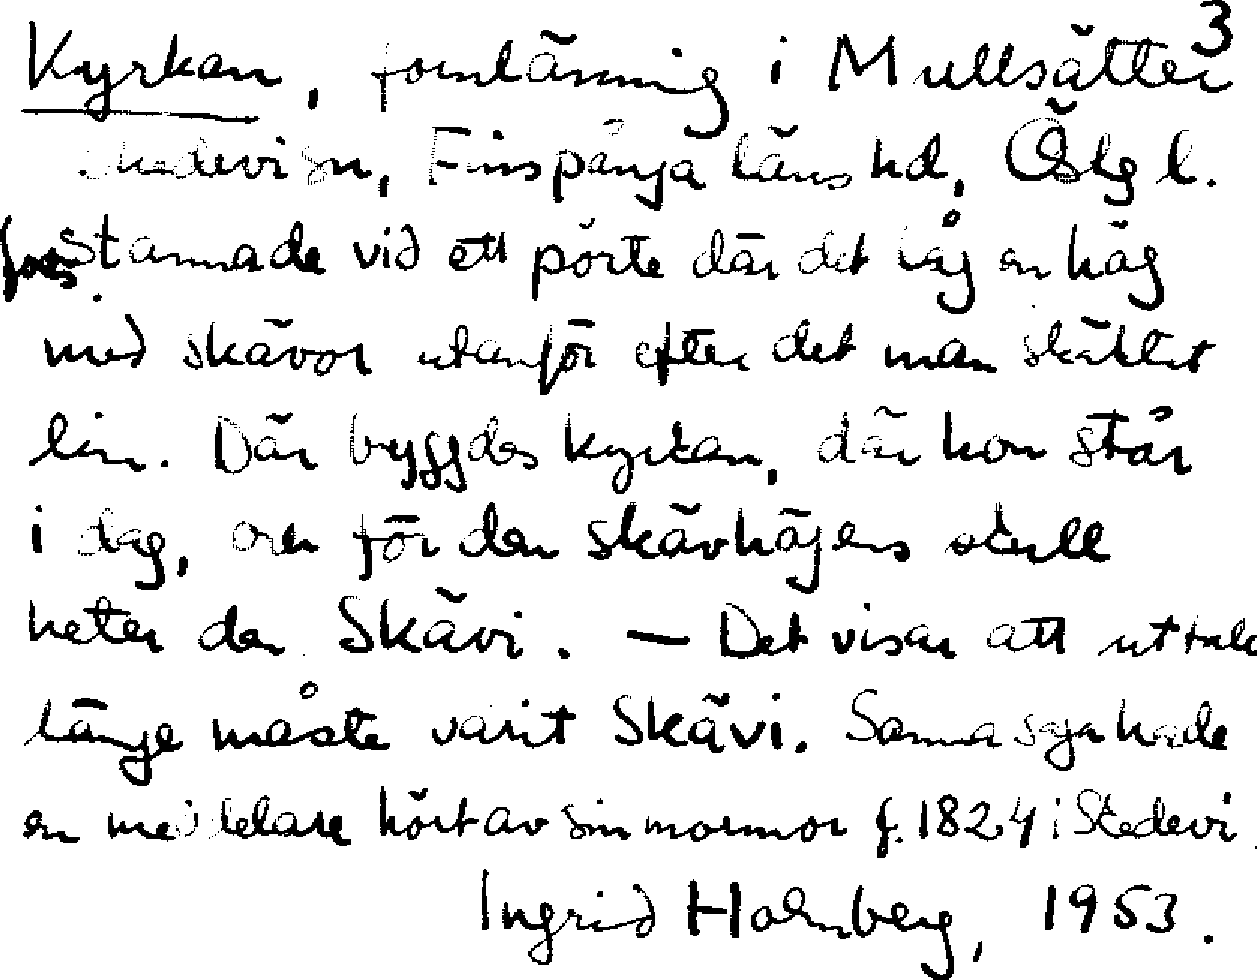 3
Kyrkan, fornlämning i Mullsätter
Skedevi sn, Finspånga läns hd, Östg l.
stannade vid ett pörte där det låg en hög
med skävor utanför efter det man skäktat
lin. Där byggdes kyrkan, där hon står
i dag, och för den skävhögens skull
heter den Skävi. — Det visar att uttalet
länge måste varit Skävi. Samma saga hade
en meddelare hört av sin mormor f. 1824 i Skedevi.
Ingrid Holmberg, 1953.